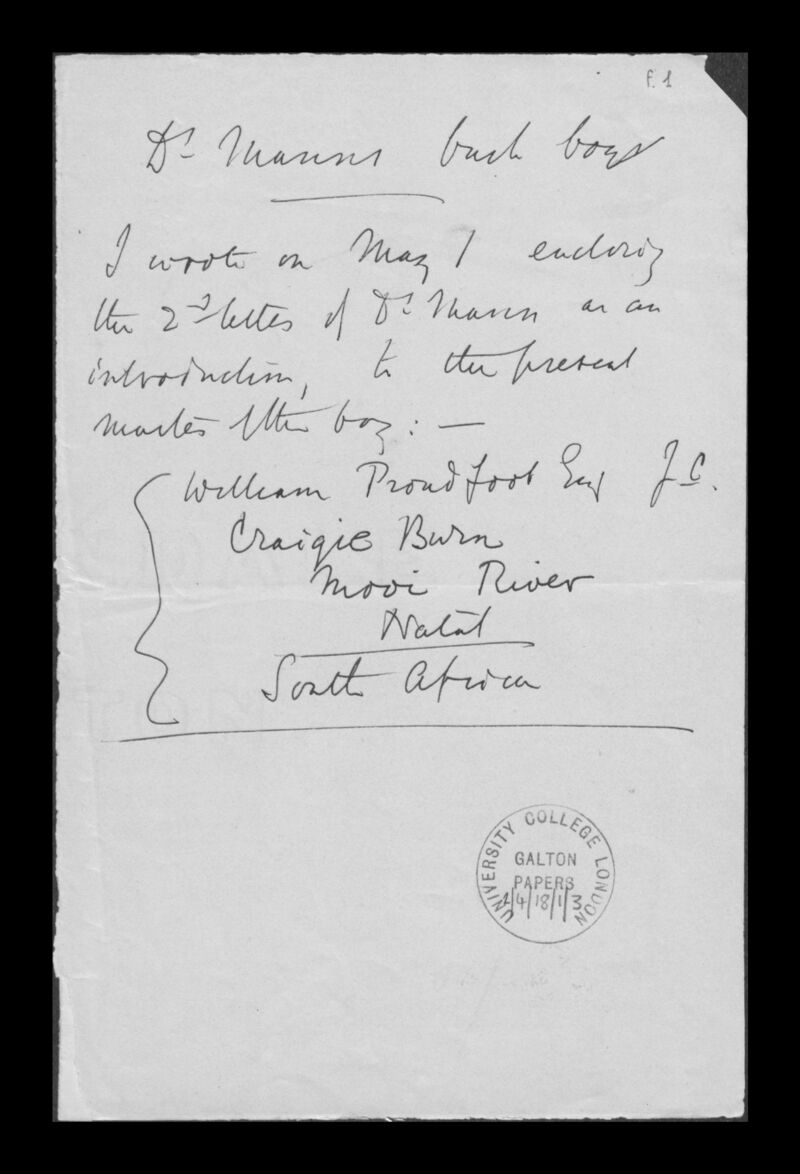 f. 1
Dr Manns bush boys
I wrote on May 1 enclosing
the 2d letter of Dr Mann as an
introduction, to the present
master of the boy: —
William Proudfoot Esq J.C.
Craigie Burn
Mooi River
Natal
South Africa
UNIVERSITY COLLEGE LONDON
GALTON
PAPERS
2/4/18/1/3